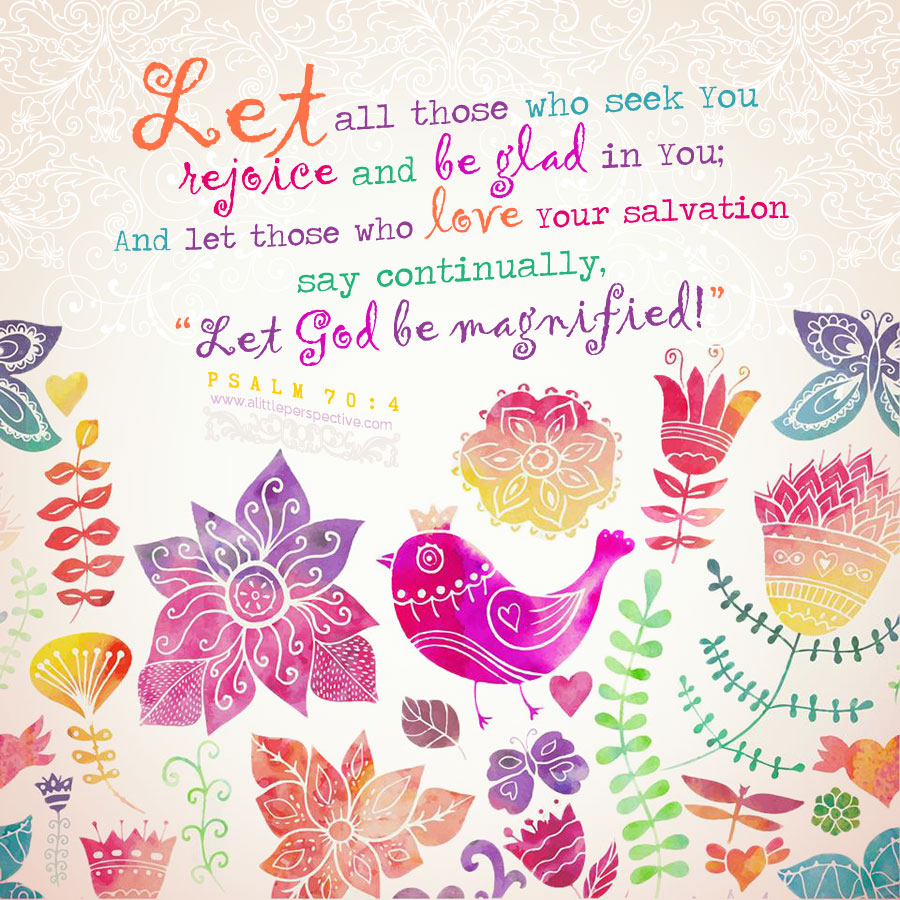 Let all those who seek You
rejoice and be glad in You;
And let those who love Your salvation
say continually,
“Let God be magnified!”
PSALM 70:4
www.alittleperspective.com